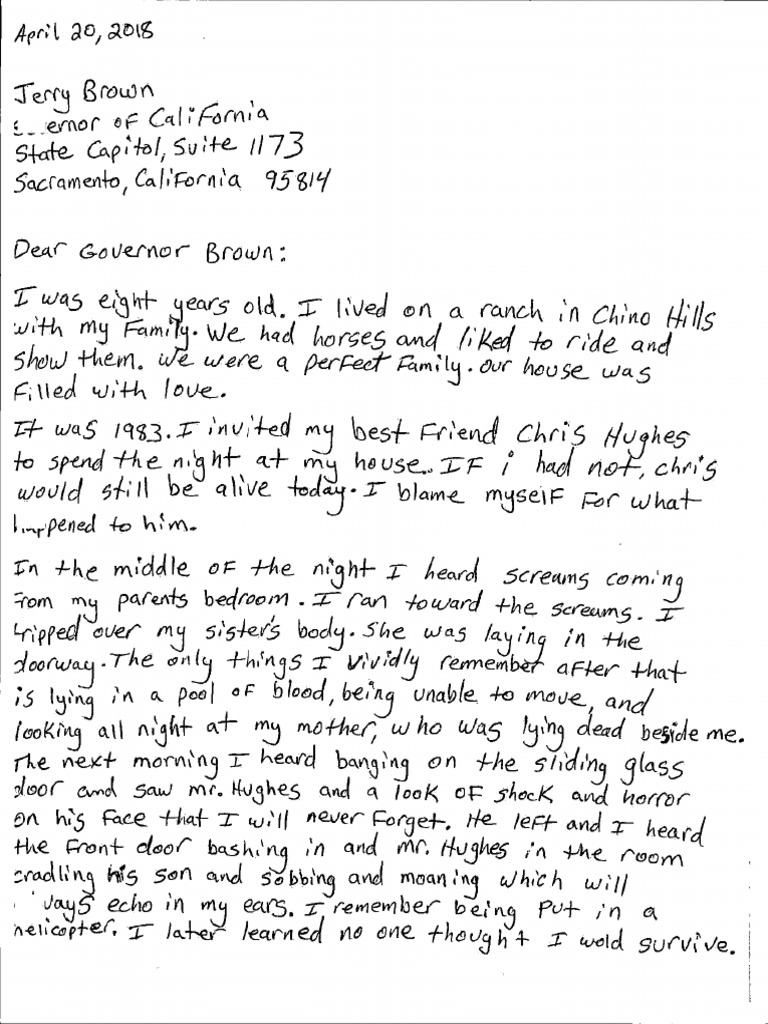 April 20, 2018
Jerry Brown
ernor of California
State Capitol, Suite 1173
Sacramento, California 95814
Dear Governor Brown:
I was eight years old. I lived on a ranch in Chino Hills
with my Family. We had horses and liked to ride and
show them. We were a perfect Family. Our house was
Filled with love.
It was 1983. I invited my best Friend Chris Hughes
to spend the night at my house. IF i had not, chris
would still be alive today. I blame myself For what
happened to him.
In the middle of the night I heard screams coming
From my parents bedroom. I ran toward the screams. I
tripped over my sister's body. She was laying in the
doorway. The only things I vividly remember after that
is lying in a pool of blood, being unable to move, and
looking all night at my mother, who was lying dead beside me.
The next morning I heard banging on the sliding glass
door and saw mr. Hughes and a look of shock and horror
on his face that I will never Forget. He left and I heard
the Front door bashing in and mr. Hughes in the room
cradling his son and sobbing and moaning which will
ways echo in my ears. I remember being put in a
helicopter. I later learned no one thought I wold survive.